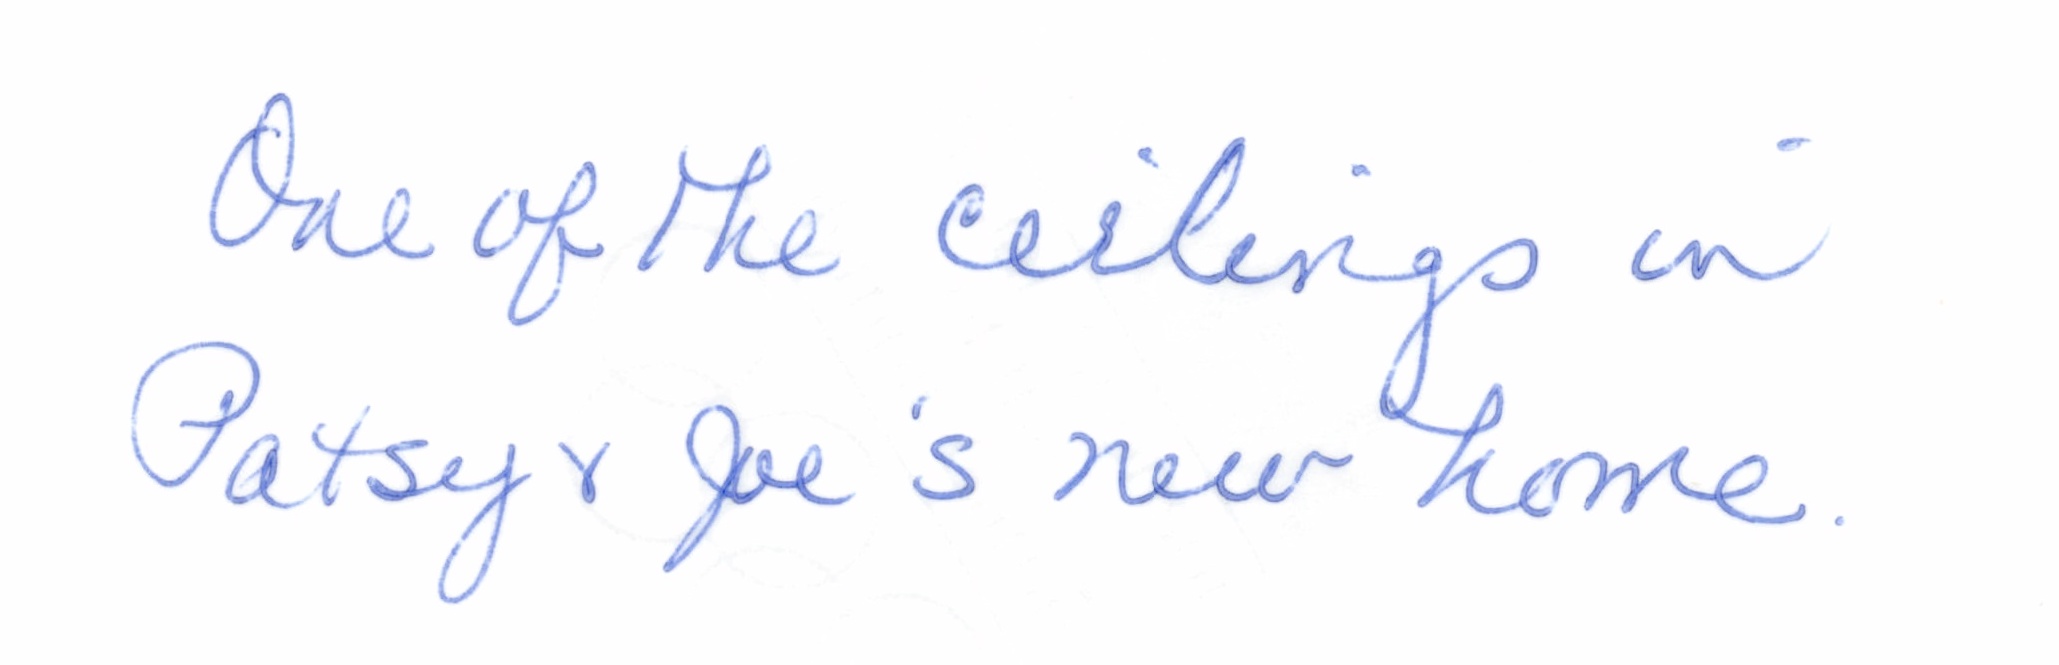 One of the ceilings in
Patsy & Joe's new home.